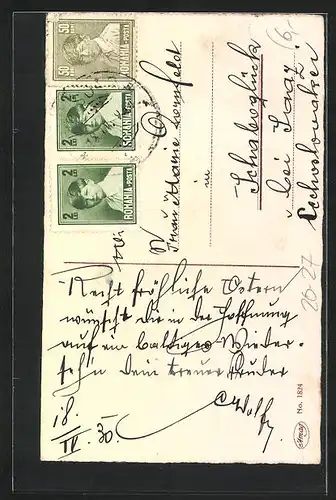 50 BANI
ROMANIA POSTA
2 LEI
ROMANIA POSTA
2 LEI
ROMANIA POSTA
Frau Marie
in
Schaboglück
bei Saaz
Čechoslovakei
6,-
20-27
Recht fröhliche Ostern
wünscht dir in der Hoffnung
auf ein baldiges Wieder-
seh'n dein treuer Bruder
18.
IV. 30.
Amag
No. 1824